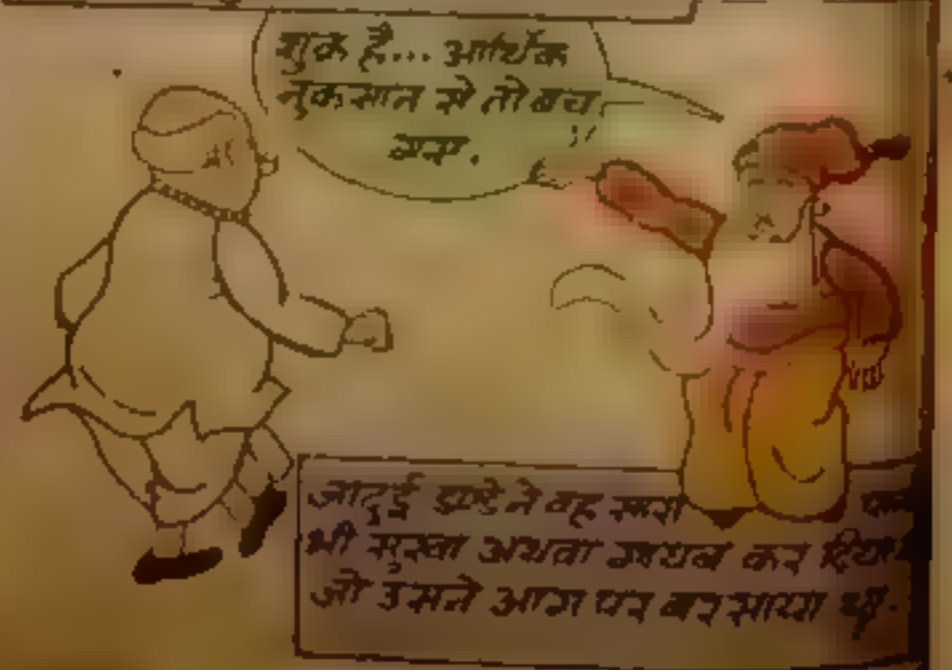 शुक्र है... आर्थिक
नुकसान से तो बच
गया.
जादुई डण्डे ने वह सारा
भी सुखा अथवा गायब कर दिया
जो उसने आग पर बरसाया था.